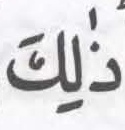 ذٰلِكَ